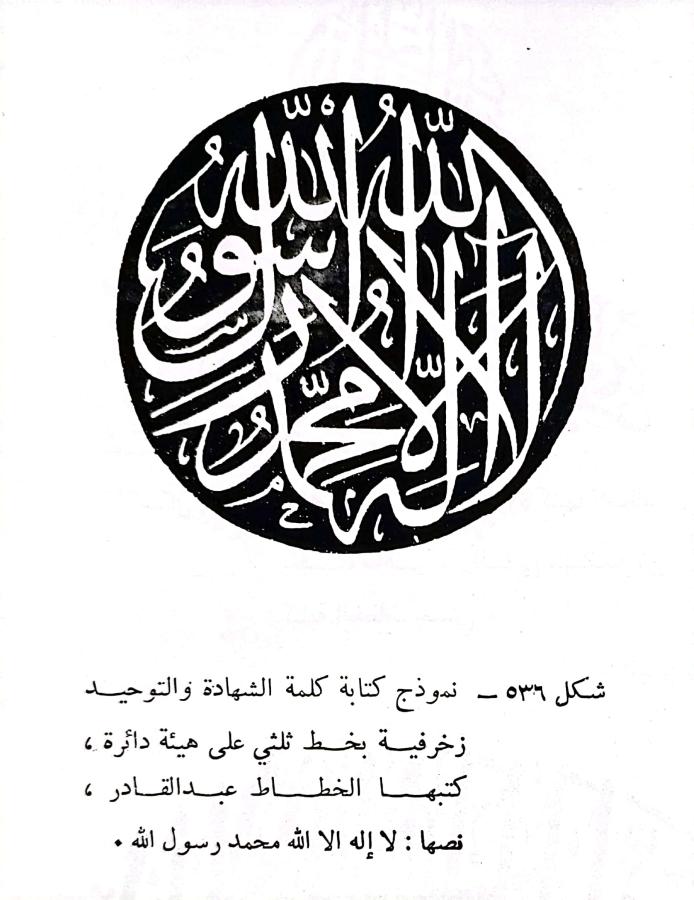 لا إله إلا الله محمد رسول الله
شكل ٥٣٦ ــ نموذج كتابة كلمة الشهادة والتوحيد
زخرفية بخط ثلثي على هيئة دائرة ،
كتبها الخطاط عبدالقادر ،
نصها : لا إله الا الله محمد رسول الله ٠